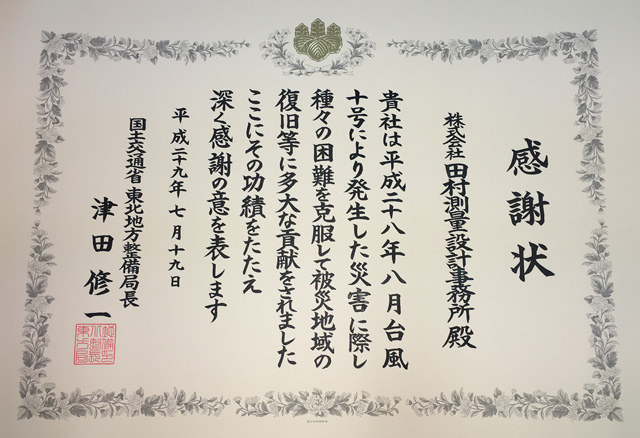 感謝状
株式会社 田村測量設計事務所 殿
貴社は平成二十八年八月台風
十号により発生した災害に際し
種々の困難を克服して被災地域の
復旧等に多大な貢献をされました
ここにその功績をたたえ
深く感謝の意を表します
平成二十九年七月十九日
国土交通省 東北地方整備局長
津田修一